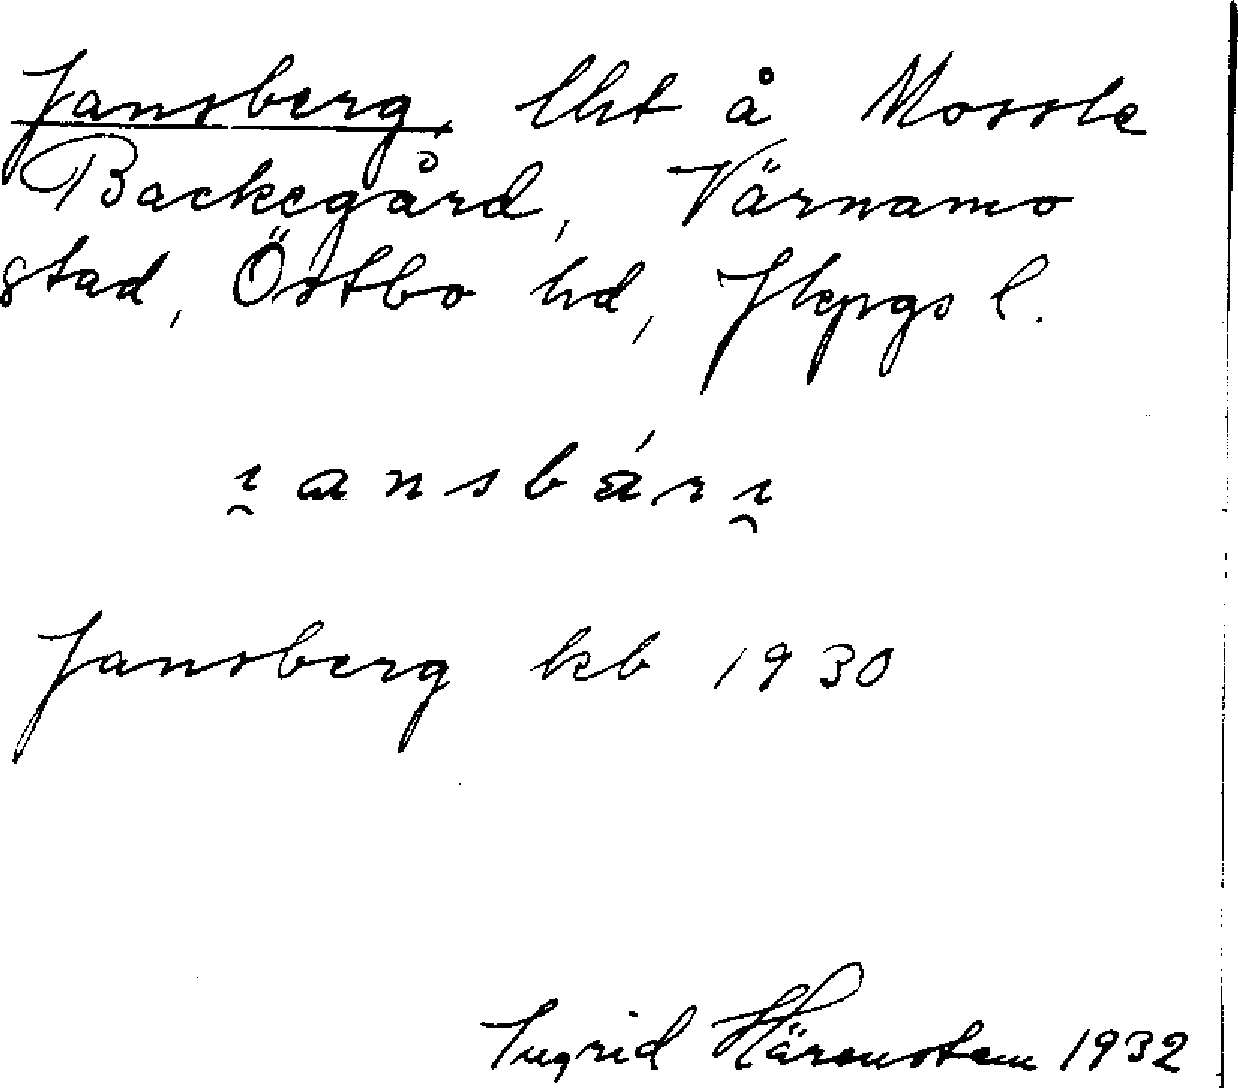 Jansberg, lht å Mossle
Backegård, Värnamo
stad, Östbo hd, Jkpgs l.
i̯ansbári̯
Jansberg kb 1930
Ingrid Härenstam 1932